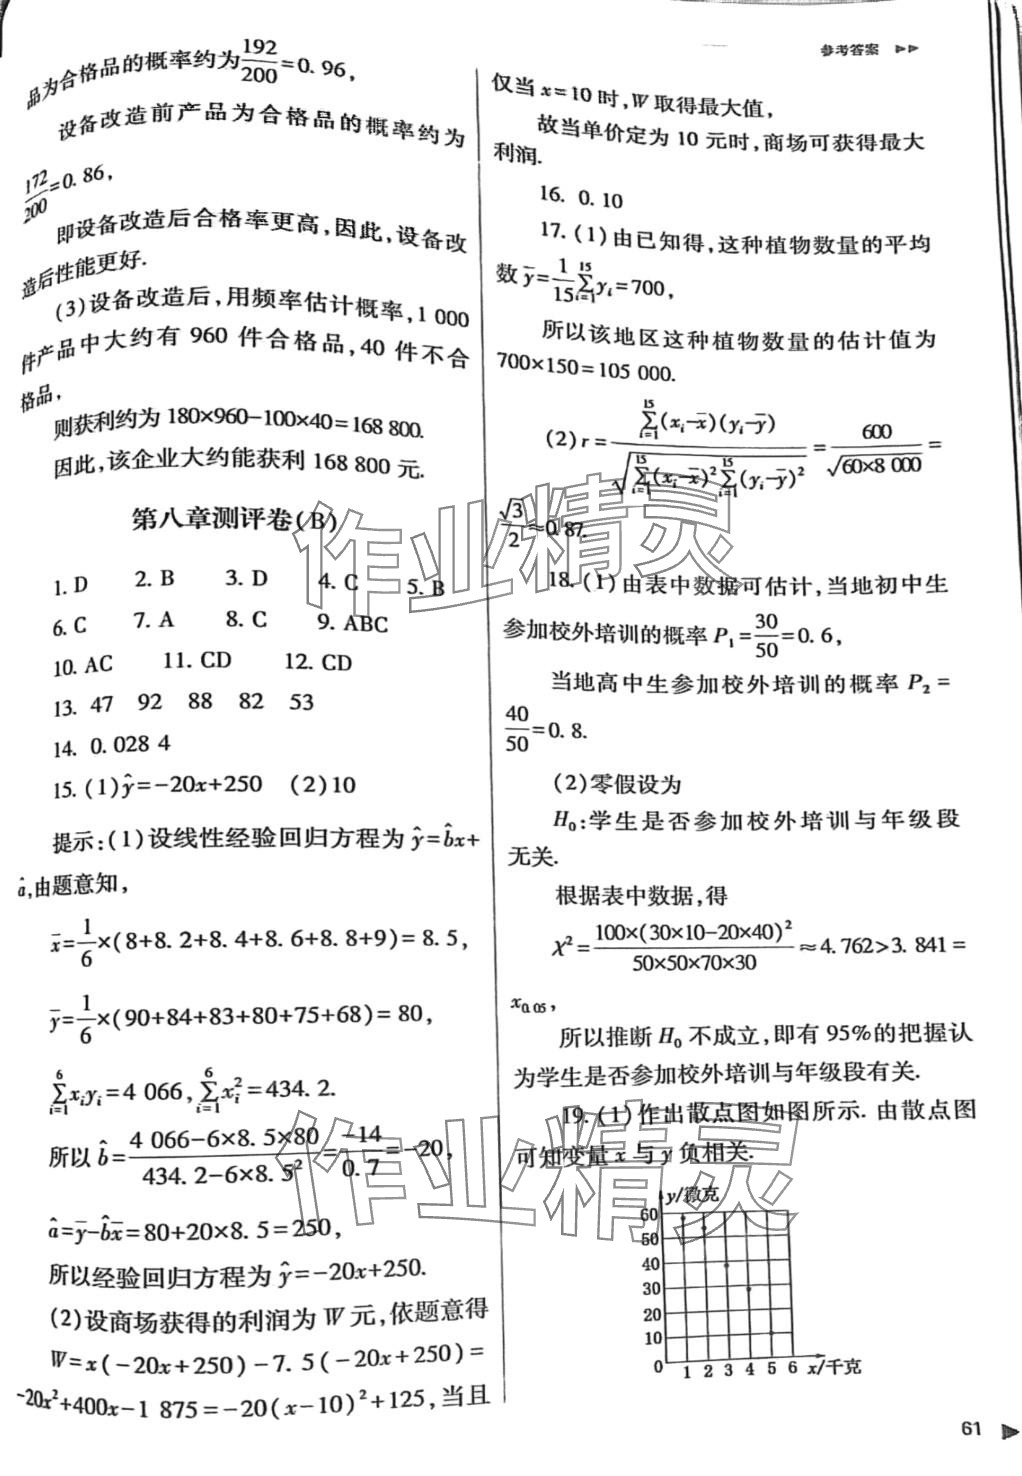 参考答案 ▶▶
品为合格品的概率约为192/200=0.96,
设备改造前产品为合格品的概率约为
172/200=0.86,
即设备改造后合格率更高,因此,设备改
造后性能更好.
(3)设备改造后,用频率估计概率,1 000
件产品中大约有 960 件合格品,40 件不合
格品,
则获利约为 180×960-100×40=168 800.
因此,该企业大约能获利 168 800 元.
第八章测评卷(B)
1. D 2. B 3. D 4. C 5. B
6. C 7. A 8. C 9. ABC
10. AC 11. CD 12. CD
13. 47 92 88 82 53
14. 0.028 4
15. (1)ŷ=-20x+250 (2)10
提示:(1)设线性经验回归方程为 ŷ=b̂x+
â,由题意知,
x̄=1/6×(8+8.2+8.4+8.6+8.8+9)=8.5,
ȳ=1/6×(90+84+83+80+75+68)=80,
∑_{i=1}^{6}x_iy_i=4 066,∑_{i=1}^{6}x_i²=434.2.
所以 b̂=(4 066-6×8.5×80)/(434.2-6×8.5²)=-14/0.7=-20,
â=ȳ-b̂x̄=80+20×8.5=250,
所以经验回归方程为 ŷ=-20x+250.
(2)设商场获得的利润为 W 元,依题意得
W=x(-20x+250)-7.5(-20x+250)=
-20x²+400x-1 875=-20(x-10)²+125,当且
仅当 x=10 时,W 取得最大值,
故当单价定为 10 元时,商场可获得最大
利润.
16. 0.10
17. (1)由已知得,这种植物数量的平均
数 ȳ=1/15∑_{i=1}^{15}y_i=700,
所以该地区这种植物数量的估计值为
700×150=105 000.
(2)r=∑_{i=1}^{15}(x_i-x̄)(y_i-ȳ)/√(∑_{i=1}^{15}(x_i-x̄)²∑_{i=1}^{15}(y_i-ȳ)²)=600/√(60×8 000)=
√3/2≈0.87.
18. (1)由表中数据可估计,当地初中生
参加校外培训的概率 P₁=30/50=0.6,
当地高中生参加校外培训的概率 P₂=
40/50=0.8.
(2)零假设为
H₀:学生是否参加校外培训与年级段
无关.
根据表中数据,得
χ²=100×(30×10-20×40)²/(50×50×70×30)≈4.762>3.841=
x₀.₀₅,
所以推断 H₀ 不成立,即有 95%的把握认
为学生是否参加校外培训与年级段有关.
19. (1)作出散点图如图所示. 由散点图
可知变量 x 与 y 负相关.
y/微克
60
50
40
30
20
10
0 1 2 3 4 5 6 x/千克
61
作业精灵
作业精灵